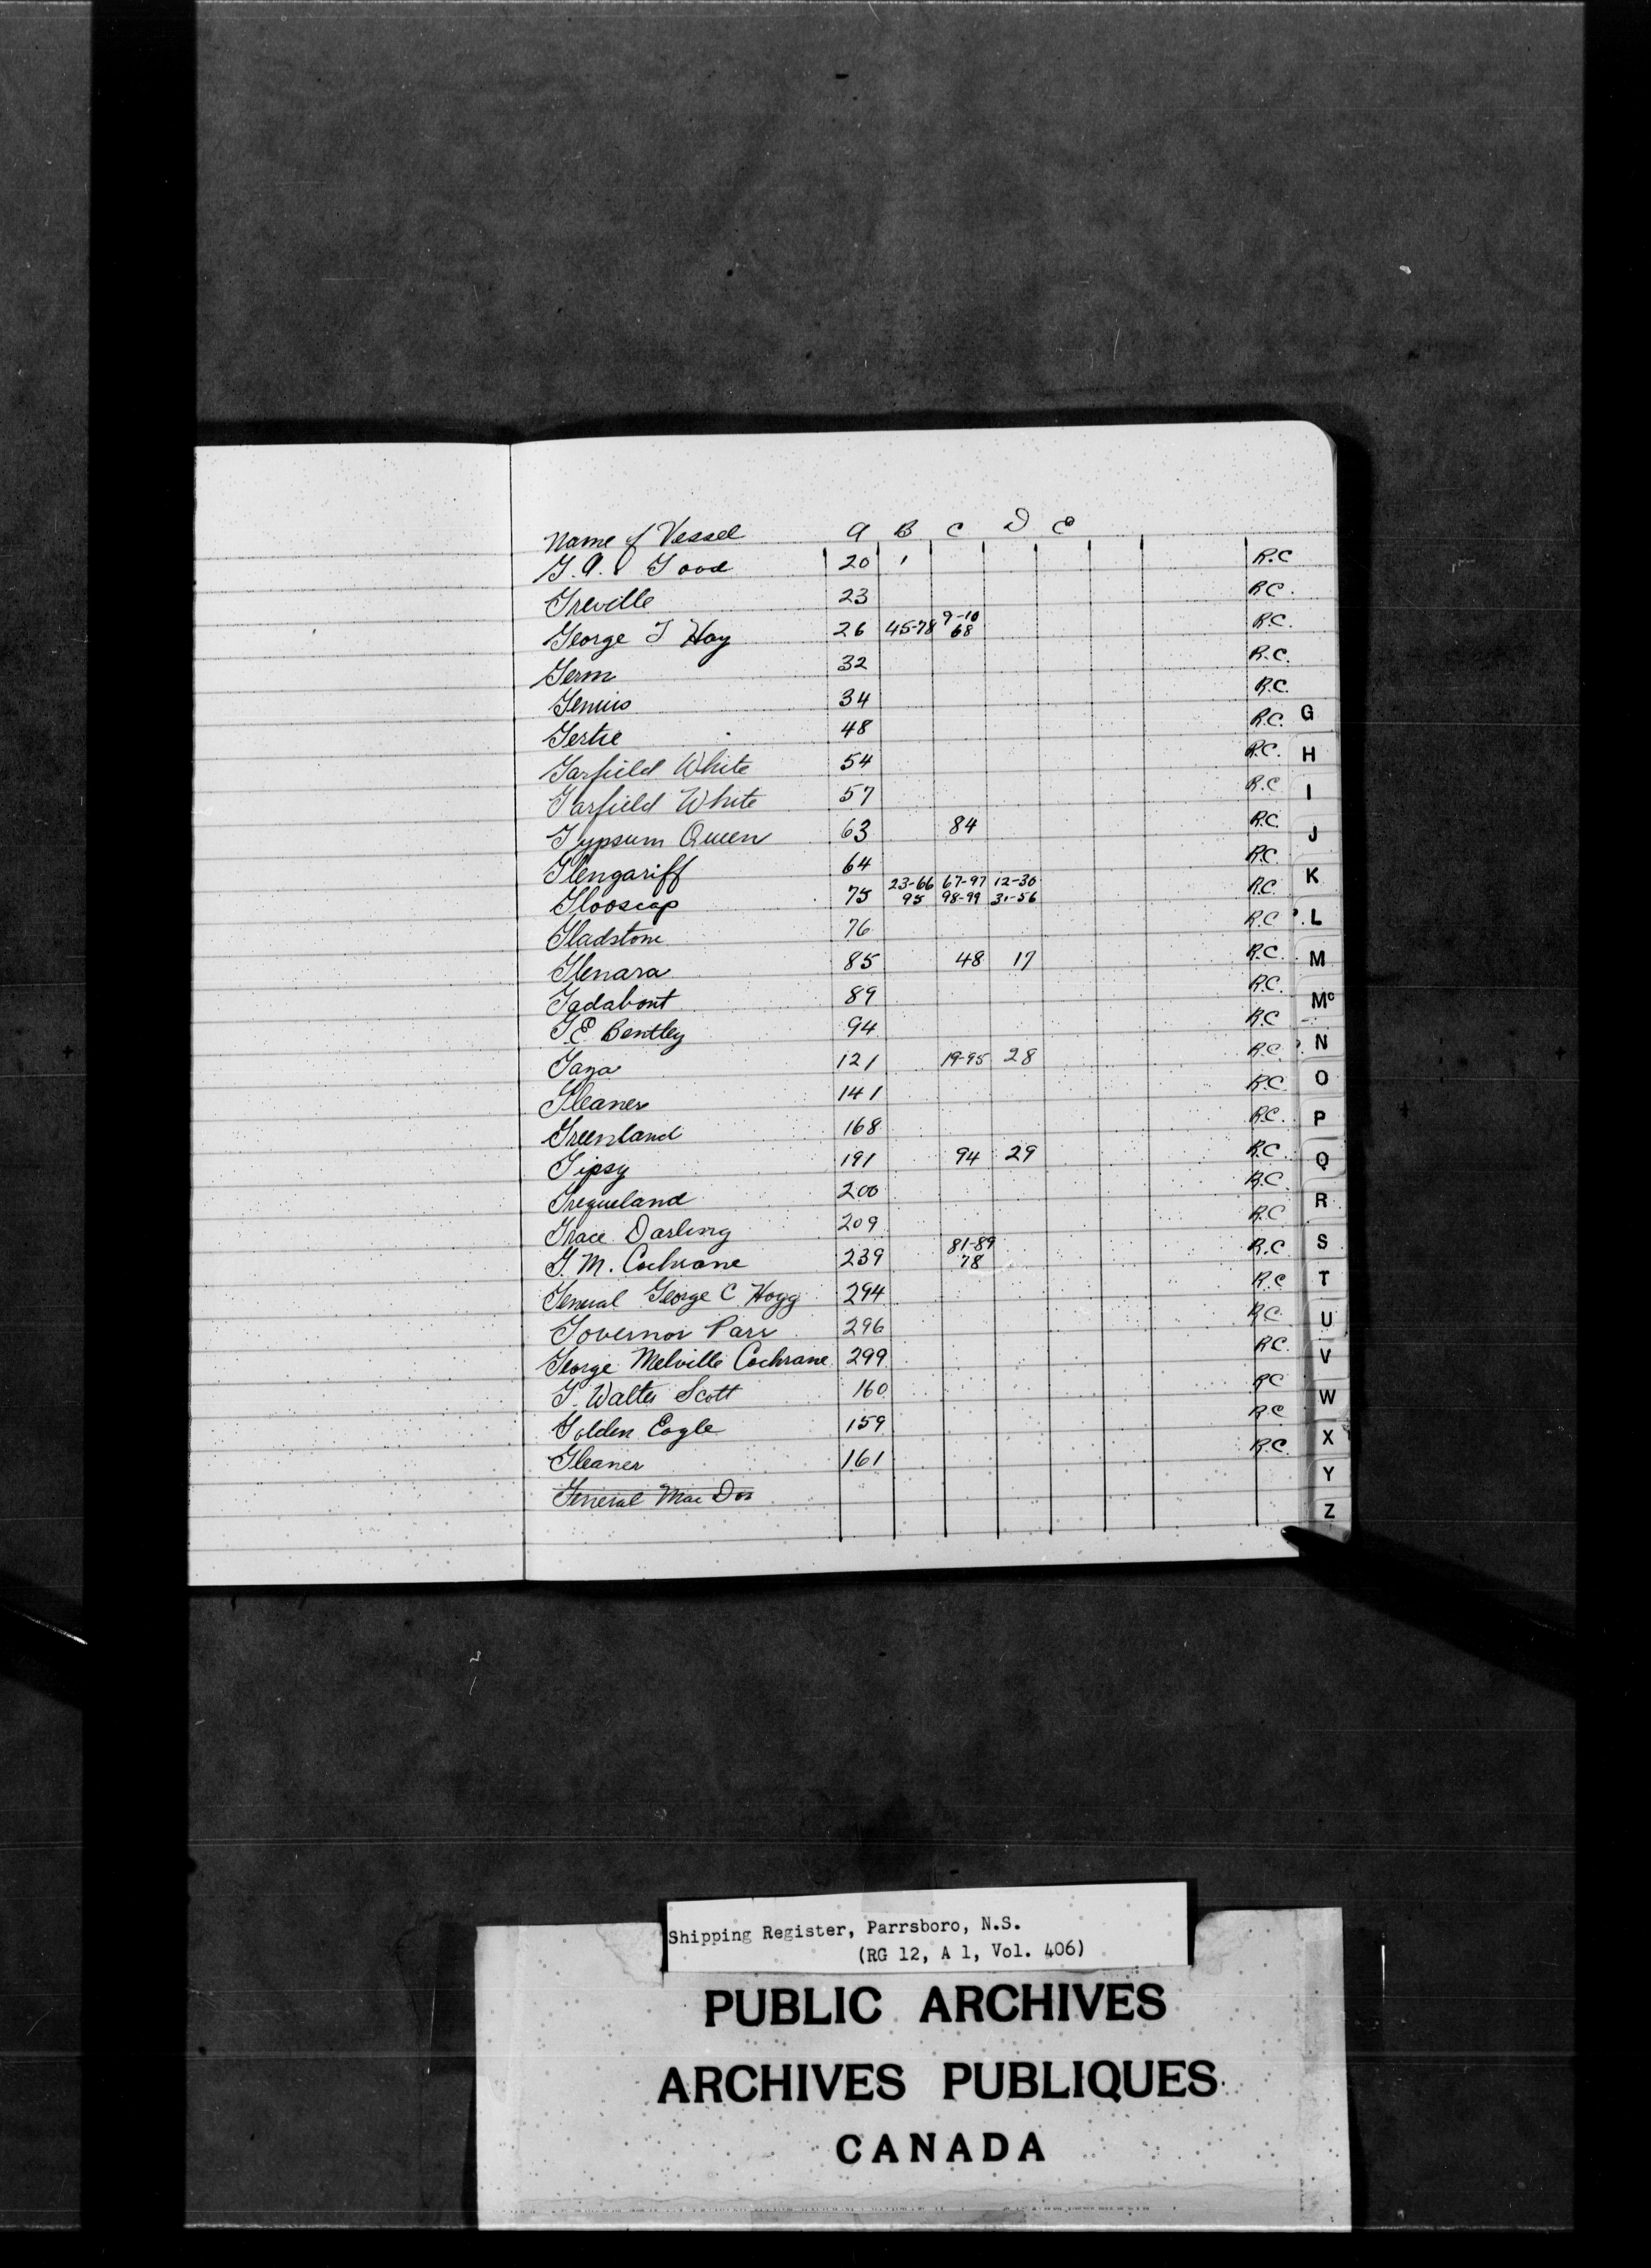 Name of Vessel A B C D E
G. A. Good 20 1 R.C
Greville 23 R.C.
George T Hay 26 45-78 9-10 68 R.C.
Germ 32 R.C.
Genius 34 R.C.
Gertie 48 R.C. G
Garfield White 54 R.C. H
Garfield White 57 R.C I
Gypsum Queen 63 84 R.C. J
Glengariff 64 R.C.
Glooscap 75 23-66 95 67-97 98-99 12-30 31-56 R.C. K
Gladstone 76 R.C L
Glenara 85 48 17 R.C. M
Gadabout 89 R.C. Mc
G.E. Bentley 94 R.C
Gaza 121 19-95 28 R.C. N
Gleaner 141 R.C. O
Greenland 168 R.C. P
Gipsy 191 94 29 R.C. Q
200 R.C. R
Grace Darling 209 R.C
G. M. Cochrane 239 81-89 78 R.C S
General George C Hogg 294 R.C T
Governor Parr 296 R.C U
George Melville Cochrane 299 R.C. V
G. Walter Scott 160 R.C W
Golden Eagle 159 R.C
Gleaner 161 R.C. X
General Mac Y
Z
Shipping Register, Parrsboro, N.S.
(RG 12, A 1, Vol. 406)
PUBLIC ARCHIVES
ARCHIVES PUBLIQUES
CANADA